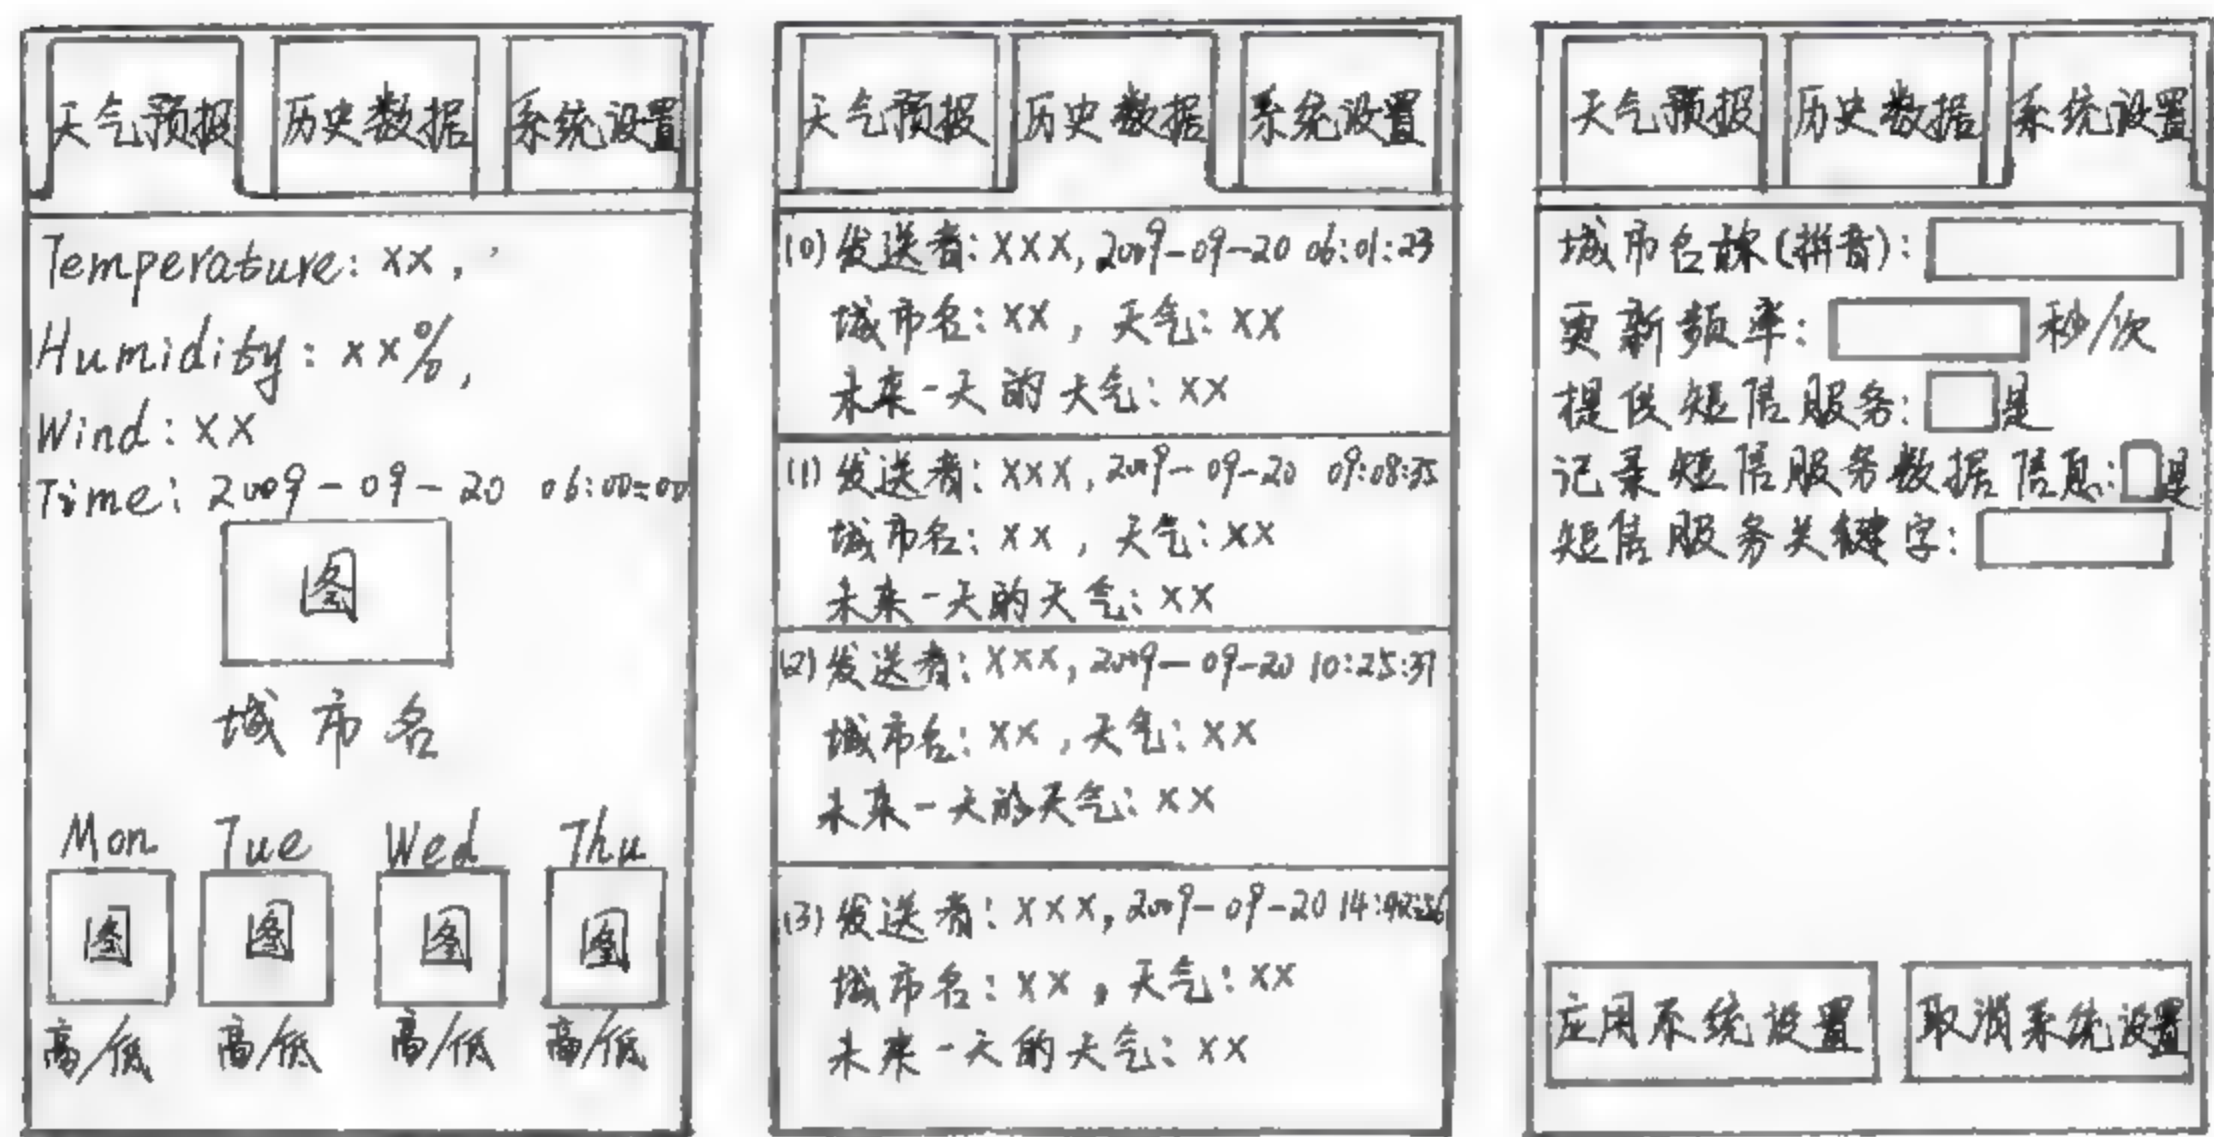 天气预报 历史数据 系统设置
Temperature: xx,
Humidity: xx%,
Wind: XX
Time: 2009-09-20 06:00:00
图
城市名
Mon Tue Wed Thu
图 图 图 图
高/低 高/低 高/低 高/低
天气预报 历史数据 系统设置
(0) 发送者: XXX, 2009-09-20 06:01:23
城市名: XX, 天气: XX
未来一天的天气: XX
(1) 发送者: XXX, 2009-09-20 09:08:35
城市名: XX, 天气: XX
未来一天的天气: XX
(2) 发送者: XXX, 2009-09-20 10:25:37
城市名: XX, 天气: XX
未来一天的天气: XX
(3) 发送者: XXX, 2009-09-20
城市名: XX, 天气: XX
未来一天的天气: XX
天气预报 历史数据 系统设置
城市名称(拼音):
更新频率: 秒/次
提供短信服务: 是
记录短信服务数据信息: 是
短信服务关键字:
应用系统设置 取消系统设置